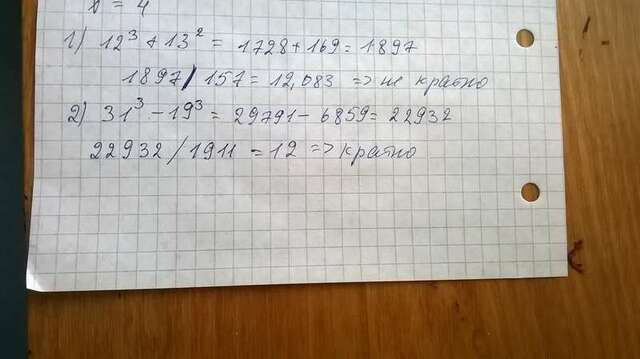 = 4
1) 12³ + 13² = 1728 + 169 = 1897
1897 / 157 = 12,083 => не кратно
2) 31³ - 19³ = 29791 - 6859 = 22932
22932 / 1911 = 12 => кратно